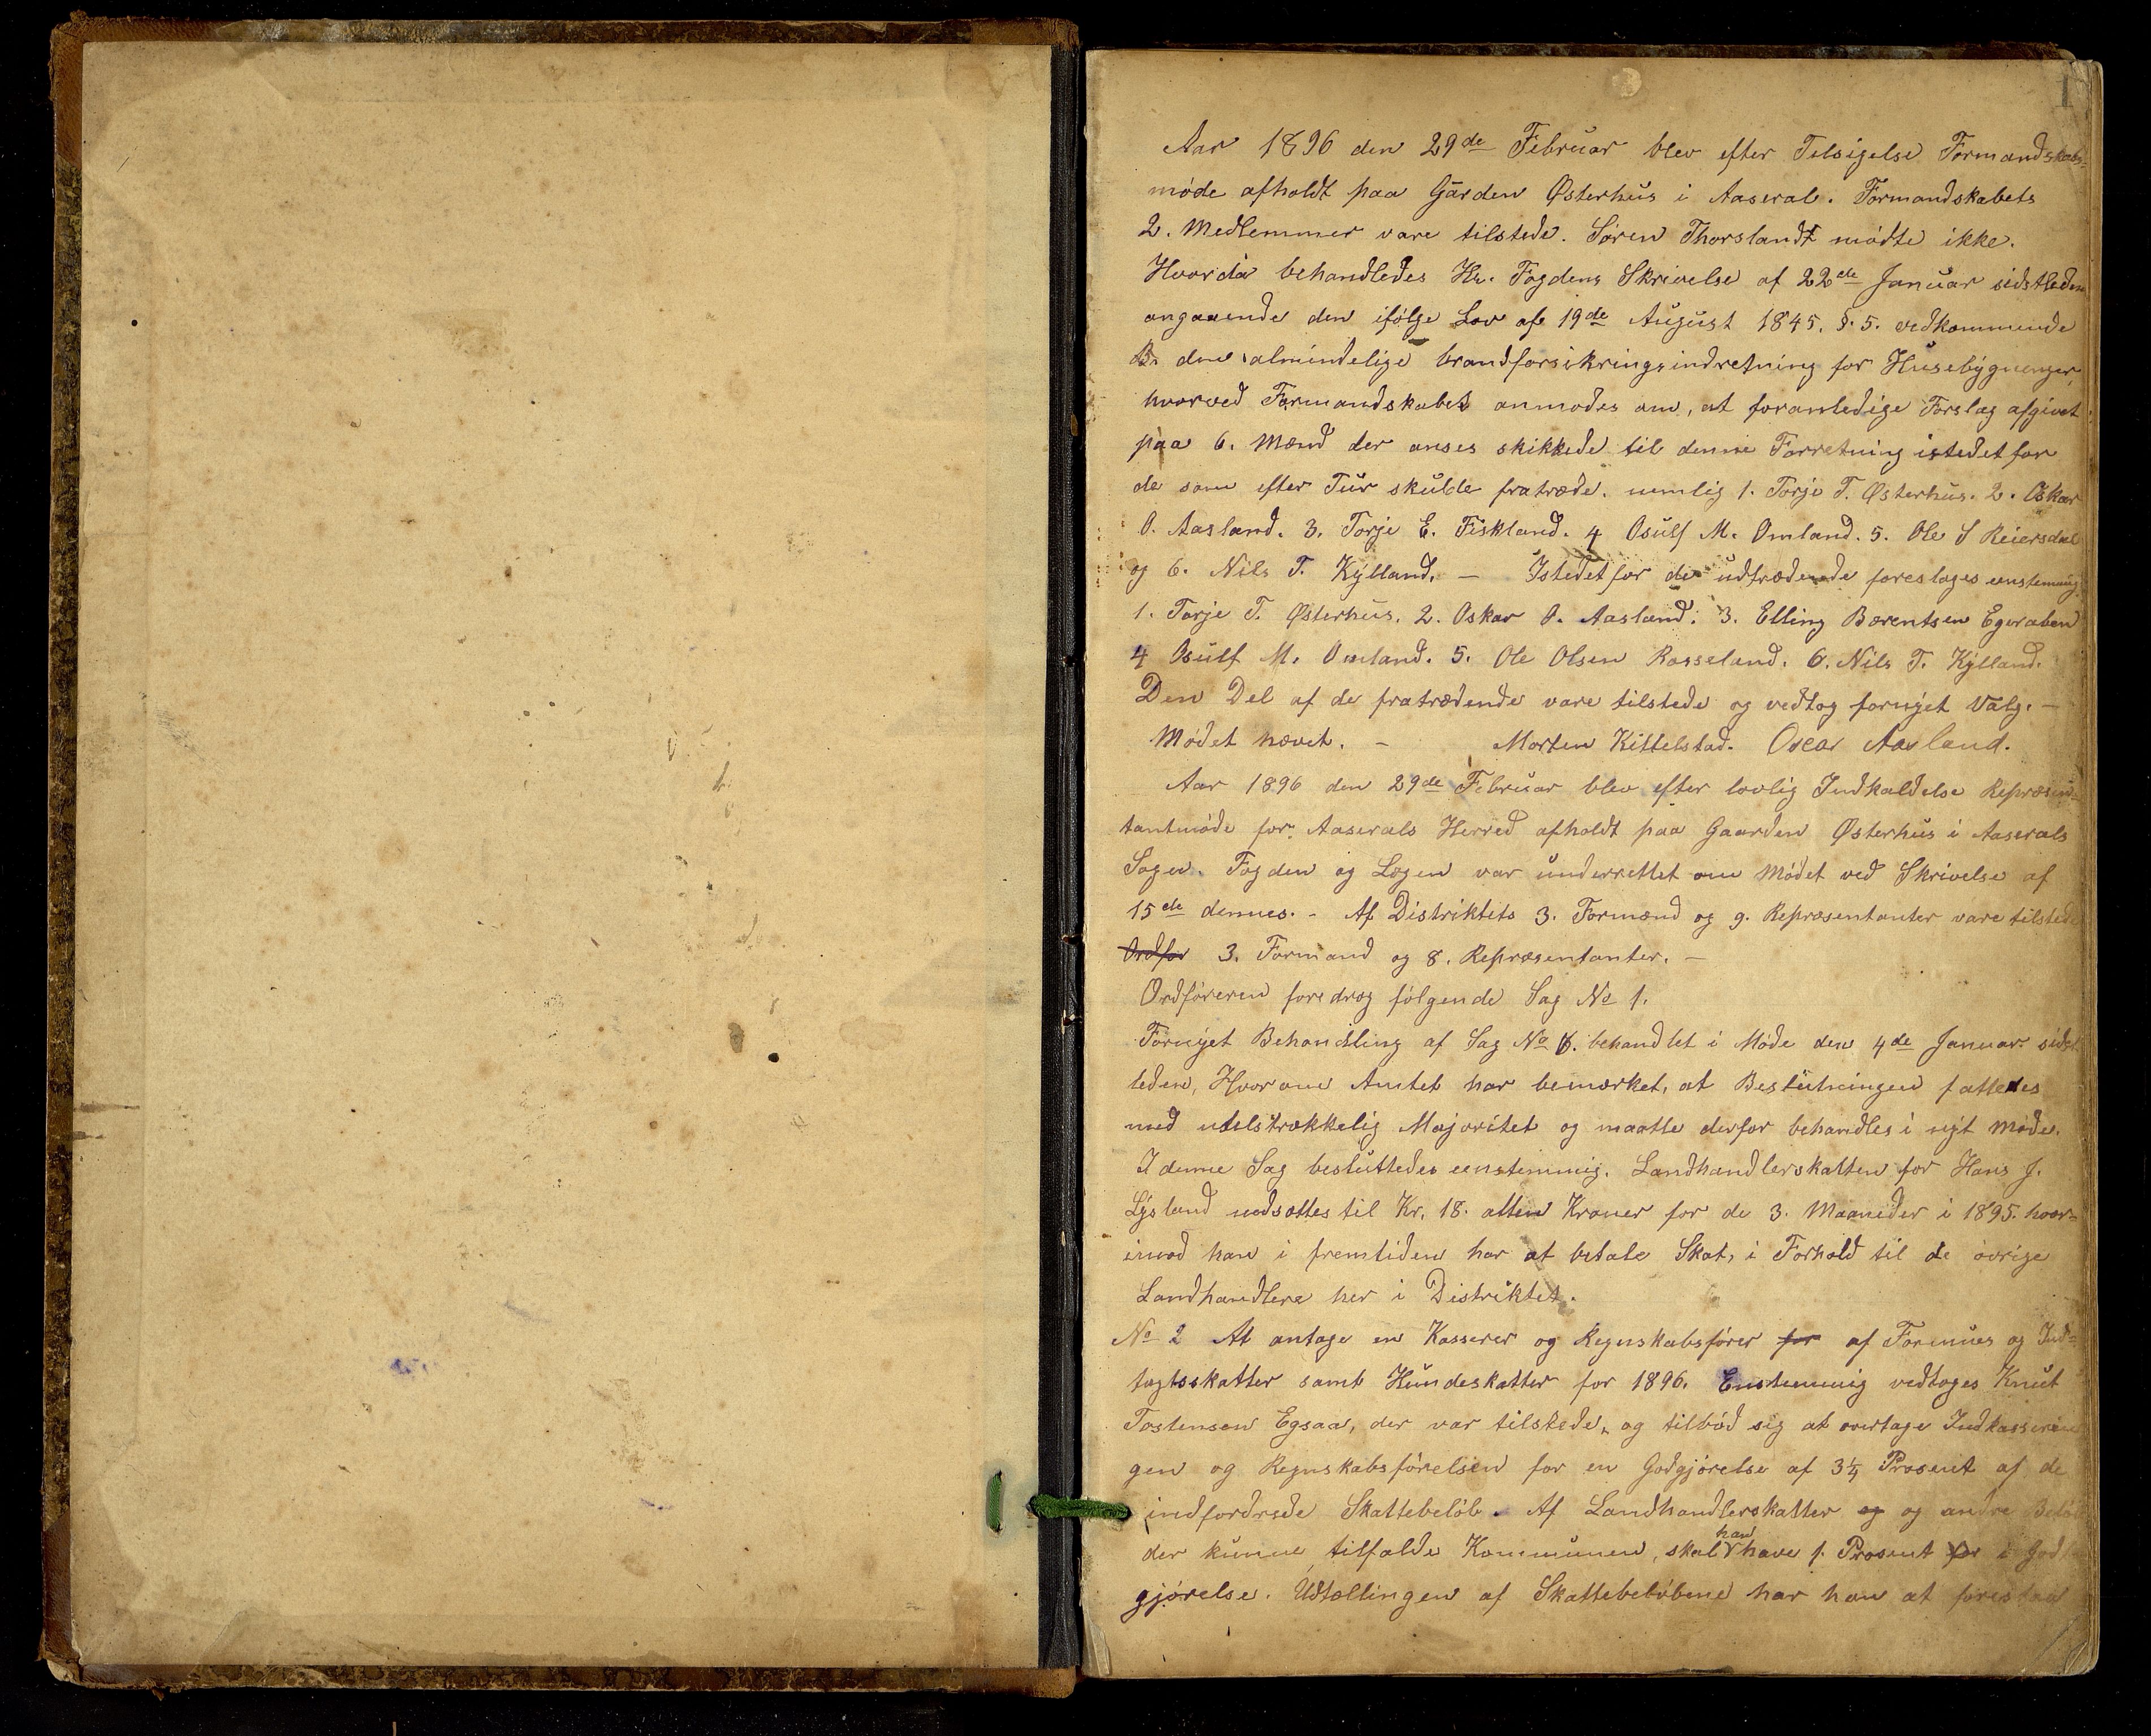 1
Aar 1896 den 29de Februar blev efter Tilsigelse Formandskabs-
møde afholdt paa Garden Østerhus i Aaseral. Formandskabets
2. Medlemmer vare tilstede. Søren Thorslandt mødte ikke.
Hvorda behandledes Hr. Fogdens Skrivelse af 22de Januar sidstleden
angaaende den ifølge Lov af 19de August 1845. §. 5. vedkommende
den almindelige brandforsikringsindretning for Husebygninger,
hvorved Formandskabet anmodes om, at foranledige Forslag afgivet
paa 6. Mænd der anses skikkede til denne Forretning istedetfor
de som efter Tur skulde fratræde. nemlig 1. Torje T. Østerhus. 2. Oskar
O. Aasland. 3. Torje E. Fiskland. 4 Osulf M. Omland. 5. Ole S Reiersdal
og 6. Nils T. Kylland. — Istedetfor de udtrædende foresloges enstemmig
1. Torje T. Østerhus. 2. Oskar O. Aasland. 3. Elling Bærentsen Egeraben
4 Osulf M. Omland. 5. Ole Olsen Rosseland. 6. Nils T. Kylland.
Den Del af de fratrædende vare tilstede og vedtog fornyet Valg. —
Mødet hævet. — Morten Kittelstad. Oscar Aasland.
Aar 1896 den 29de Februar blev efter lovlig Indkaldelse Repræsen-
tantmøde for Aaserals Herred afholdt paa Gaarden Østerhus i Aaserals
Sogn. Fogden og Lægen var underrettet om Mødet ved Skrivelse af
15de dennes. - Af Distriktets 3. Formænd og 9. Repræsentanter vare tilstede
Ordfør 3. Formænd og 8. Repræsentanter. —
Ordføreren foredrog følgende Sag No 1.
Fornyet Behandling af Sag No 6. behandlet i Møde den 4de Januar sidst
leden, Hvorom Amtet har bemærket, at Beslutningen fattedes
med utilstrækkelig Majoritet og maatte derfor behandles i nyt Møde.
I denne Sag besluttedes eenstemmig. Landhandlerskatten for Hans J.
Lysland nedsættes til Kr. 18. atten Kroner for de 3. Maaneder i 1895. hvor-
imod han i fremtiden har at betale Skat, i Forhold til de øvrige
Landhandlere her i Distriktet.
No 2 At antage en Kasserer og Regnskabsfører for af Formues og Ind-
tægtsskatter samt Hundeskatter for 1896. Enstemmig vedtoges Knut
Tostensen Egsaa, der var tilstede, og tilbød sig at overtage Indkasserin
gen og Regnskabsførelsen for en Godgjørelse af 3¼ Prosent af de
indfordrede Skattebeløb. Af Landhandlerskatter og og andre Beløb
der kunne tilfalde Kommunen, skal han have 1. Prosent for i God
gjørelse. Udtællingen af Skattebeløbene har han at forestaa